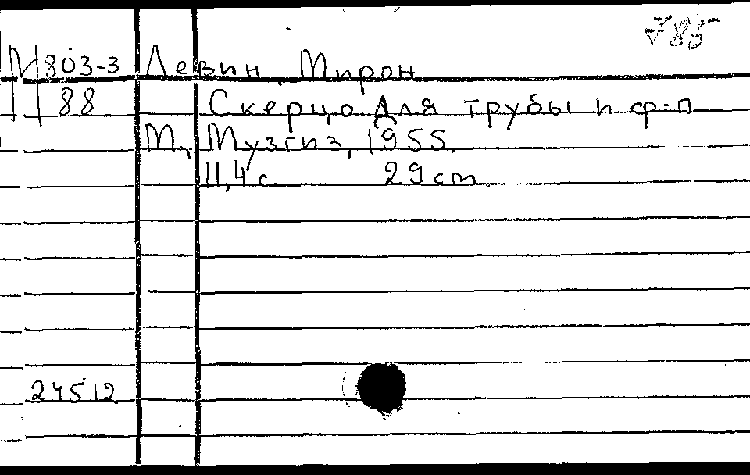 785
М 803-3 Левин, Мирон
88 Скерцо для трубы и ф-п
М., Музгиз, 1955.
11,4 с 29 cm
24512